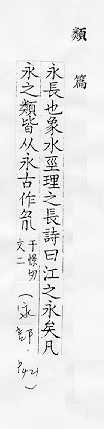 類篇
永長也象水巠理之長詩曰江之永矣凡
永之類皆从永古作 于憬切 文二 (永部. P421)